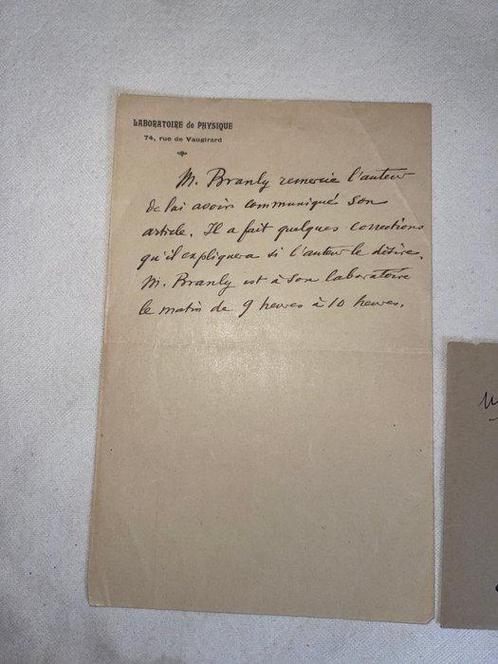 LABORATOIRE de PHYSIQUE
74, rue de Vaugirard
M. Branly remercie l'auteur
de lui avoir communiqué son
article. Il a fait quelques corrections
qu'il expliquera si l'auteur le désire.
M. Branly est à son laboratoire
le matin de 9 heures à 10 heures.